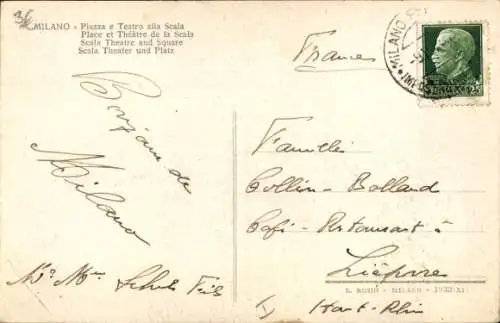 36
MILANO - Piazza e Teatro alla Scala
Place et Théâtre de la Scala
Scala Theatre and Square
Scala Theater und Platz
France
MILANO
25
Bonjour de
Milano
Mr Mme
Famille
Collin-Bolland
Café-Restaurant à
Lièpvre
Haut-Rhin
MILANO - 1933-XI